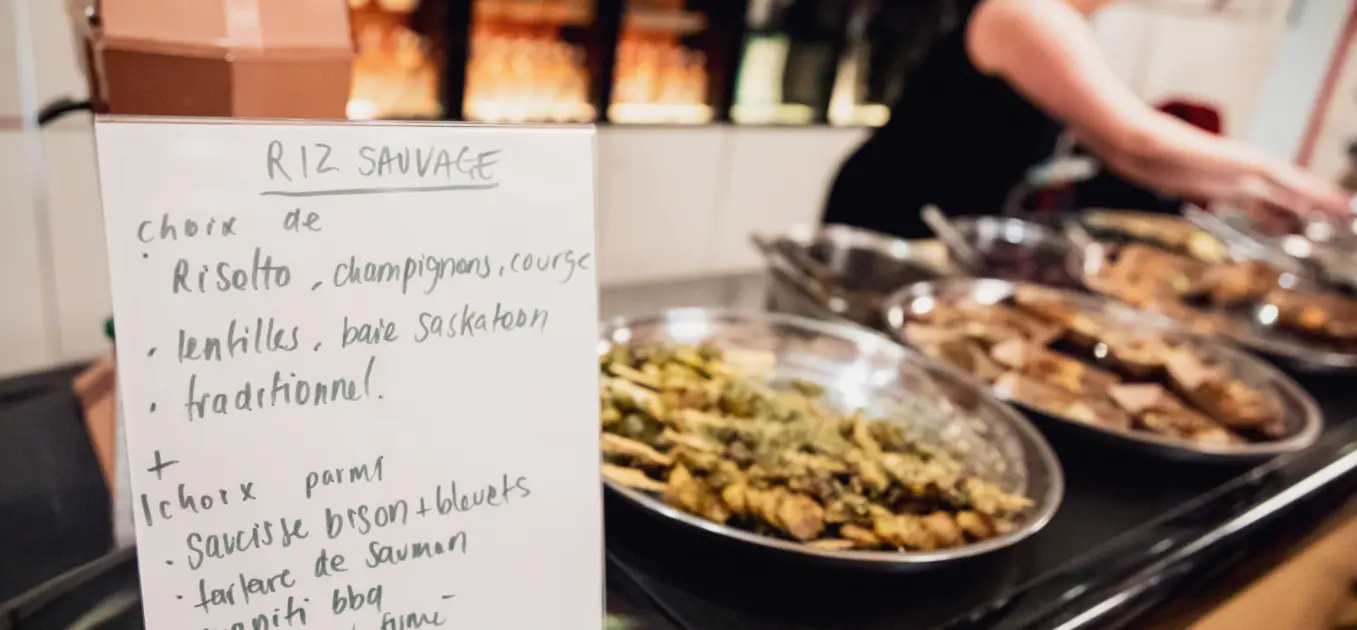 RIZ SAUVAGE
choix de
Risotto, champignons, courge
• lentilles, baie saskatoon
• traditionnel.
+
1 choix parmi
• saucisse bison + bleuets
• tartare de saumon
bbq
fumé